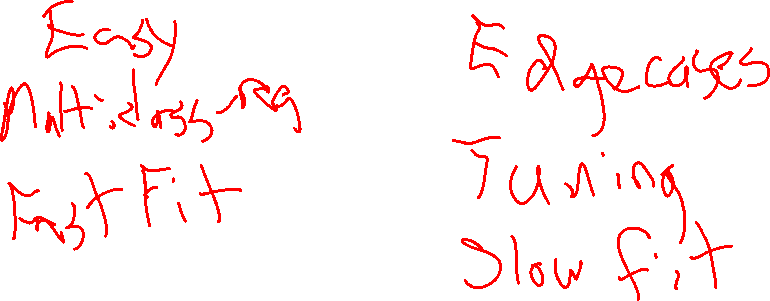 Easy
Multiclass-reg
Fast Fit
Edge cases
Tuning
Slow fit